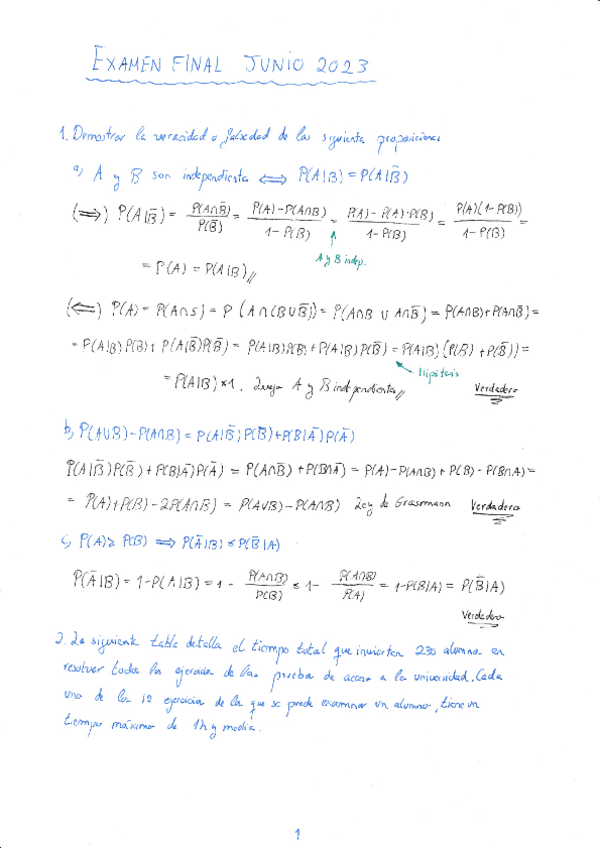 EXAMEN FINAL JUNIO 2023
1. Demostrar la veracidad o falsedad de las siguientes proposiciones
a) A y B son independientes ⟺ P(A|B) = P(A|B̄)
(⟹) P(A|B̄) = P(A∩B̄)/P(B̄) = (P(A)-P(A∩B))/(1-P(B)) = (P(A)-P(A)·P(B))/(1-P(B)) = P(A)(1-P(B))/(1-P(B)) =
A y B indep.
= P(A) = P(A|B)//
(⟸) P(A) = P(A∩S) = P(A∩(B∪B̄)) = P(A∩B ∪ A∩B̄) = P(A∩B)+P(A∩B̄) =
= P(A|B)P(B)+P(A|B̄)P(B̄) = P(A|B)P(B)+P(A|B)P(B̄) = P(A|B)(P(B)+P(B̄)) =
Hipótesis
= P(A|B)×1. Luego A y B independientes// Verdadero
b) P(A∪B)-P(A∩B) = P(A|B̄)P(B̄)+P(B|Ā)P(Ā)
P(A|B̄)P(B̄)+P(B|Ā)P(Ā) = P(A∩B̄)+P(B∩Ā) = P(A)-P(A∩B)+P(B)-P(B∩A) =
= P(A)+P(B)-2P(A∩B) = P(A∪B)-P(A∩B) Ley de Grassmann Verdadero
c) P(A)≥P(B) ⟹ P(Ā|B) ≤ P(B̄|A)
P(Ā|B) = 1-P(A|B) = 1 - P(A∩B)/P(B) ≤ 1 - P(A∩B)/P(A) = 1-P(B|A) = P(B̄|A)
Verdadero
2. La siguiente tabla detalla el tiempo total que invierten 230 alumnos en
resolver todos los ejercicios de las pruebas de acceso a la universidad. Cada
uno de los 12 ejercicios de los que se puede examinar un alumno, tiene un
tiempo máximo de 1h y media.
1